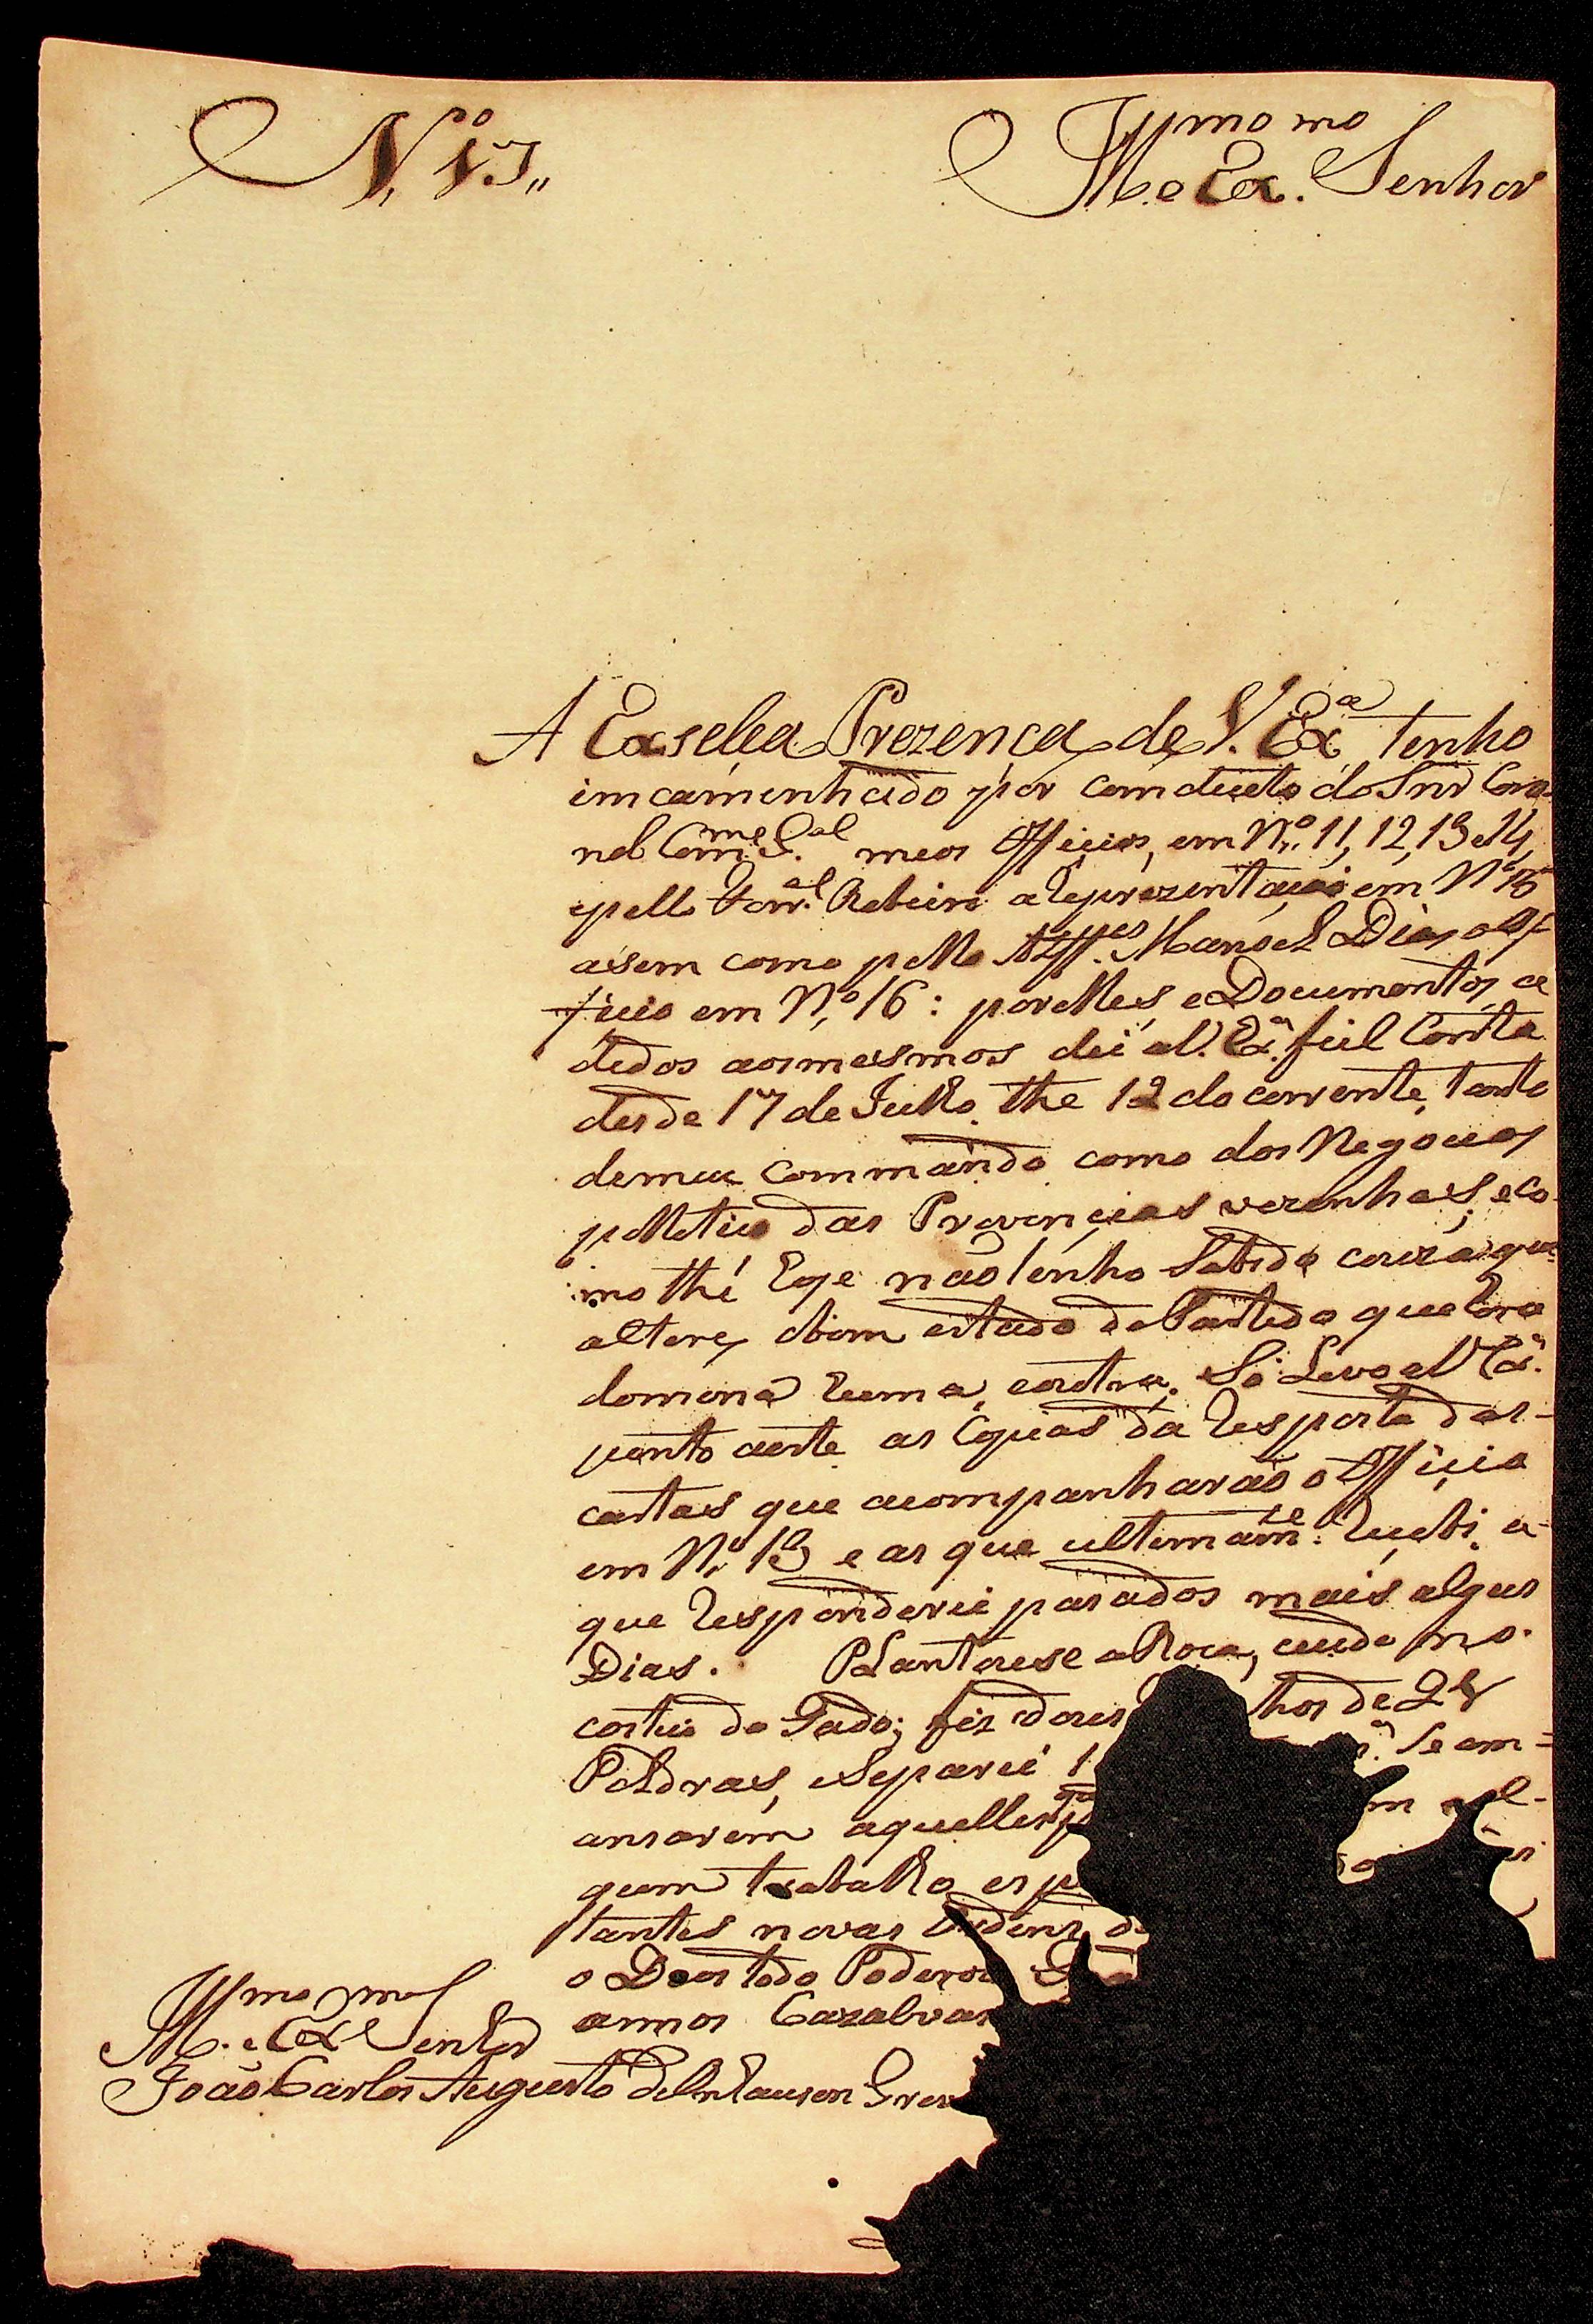 N.º 17,,
Ill.mo e Ex.mo Senhor
A Exselça Prezença de V. Ex.ª tenho
imcaminhado por comducto do Snr Coro-
nel Com.me G.al meos Officios, em N.º 11, 12, 13 e 14,
epello Ribeiro a Reprezentação em N.º 15
asem como pello Alff.es Manoel Dias o Of-
ficio em N.º 16: porelles, e Documentos, a
dedos aosmesmos dei a V. Ex.ª fiel Conta
desde 17 de Julho, the 12 do corrente, tanto
demeu commando como dos Negocios
pollitico das Provincias vezinhas; eco-
mo thé hoje não tenho Sabido couza que
altere, obom estado do Partido que hora
domina huma, e outra. Só Levo a V. Ex.ª
junto aeste as Copias da resposta das-
cartas que acompanharão o Officio
em N.º 13 e as que ultimam.te recebi, a-
que responderei pasados mais alguns
Dias. Plantouse a Roca, cuido no-
costeio do Gado; fiz dores thos de 28
Poldras, eSeparei 1 Se am-
ansarem aquelles que m al-
gum trabalho, es
tantes novas Ordens de
o Deos todo Podero
annos Cazalvas
Ill.mo e Ex.mo Senhor
João Carlos Augusto d'Oeinhausen Grev